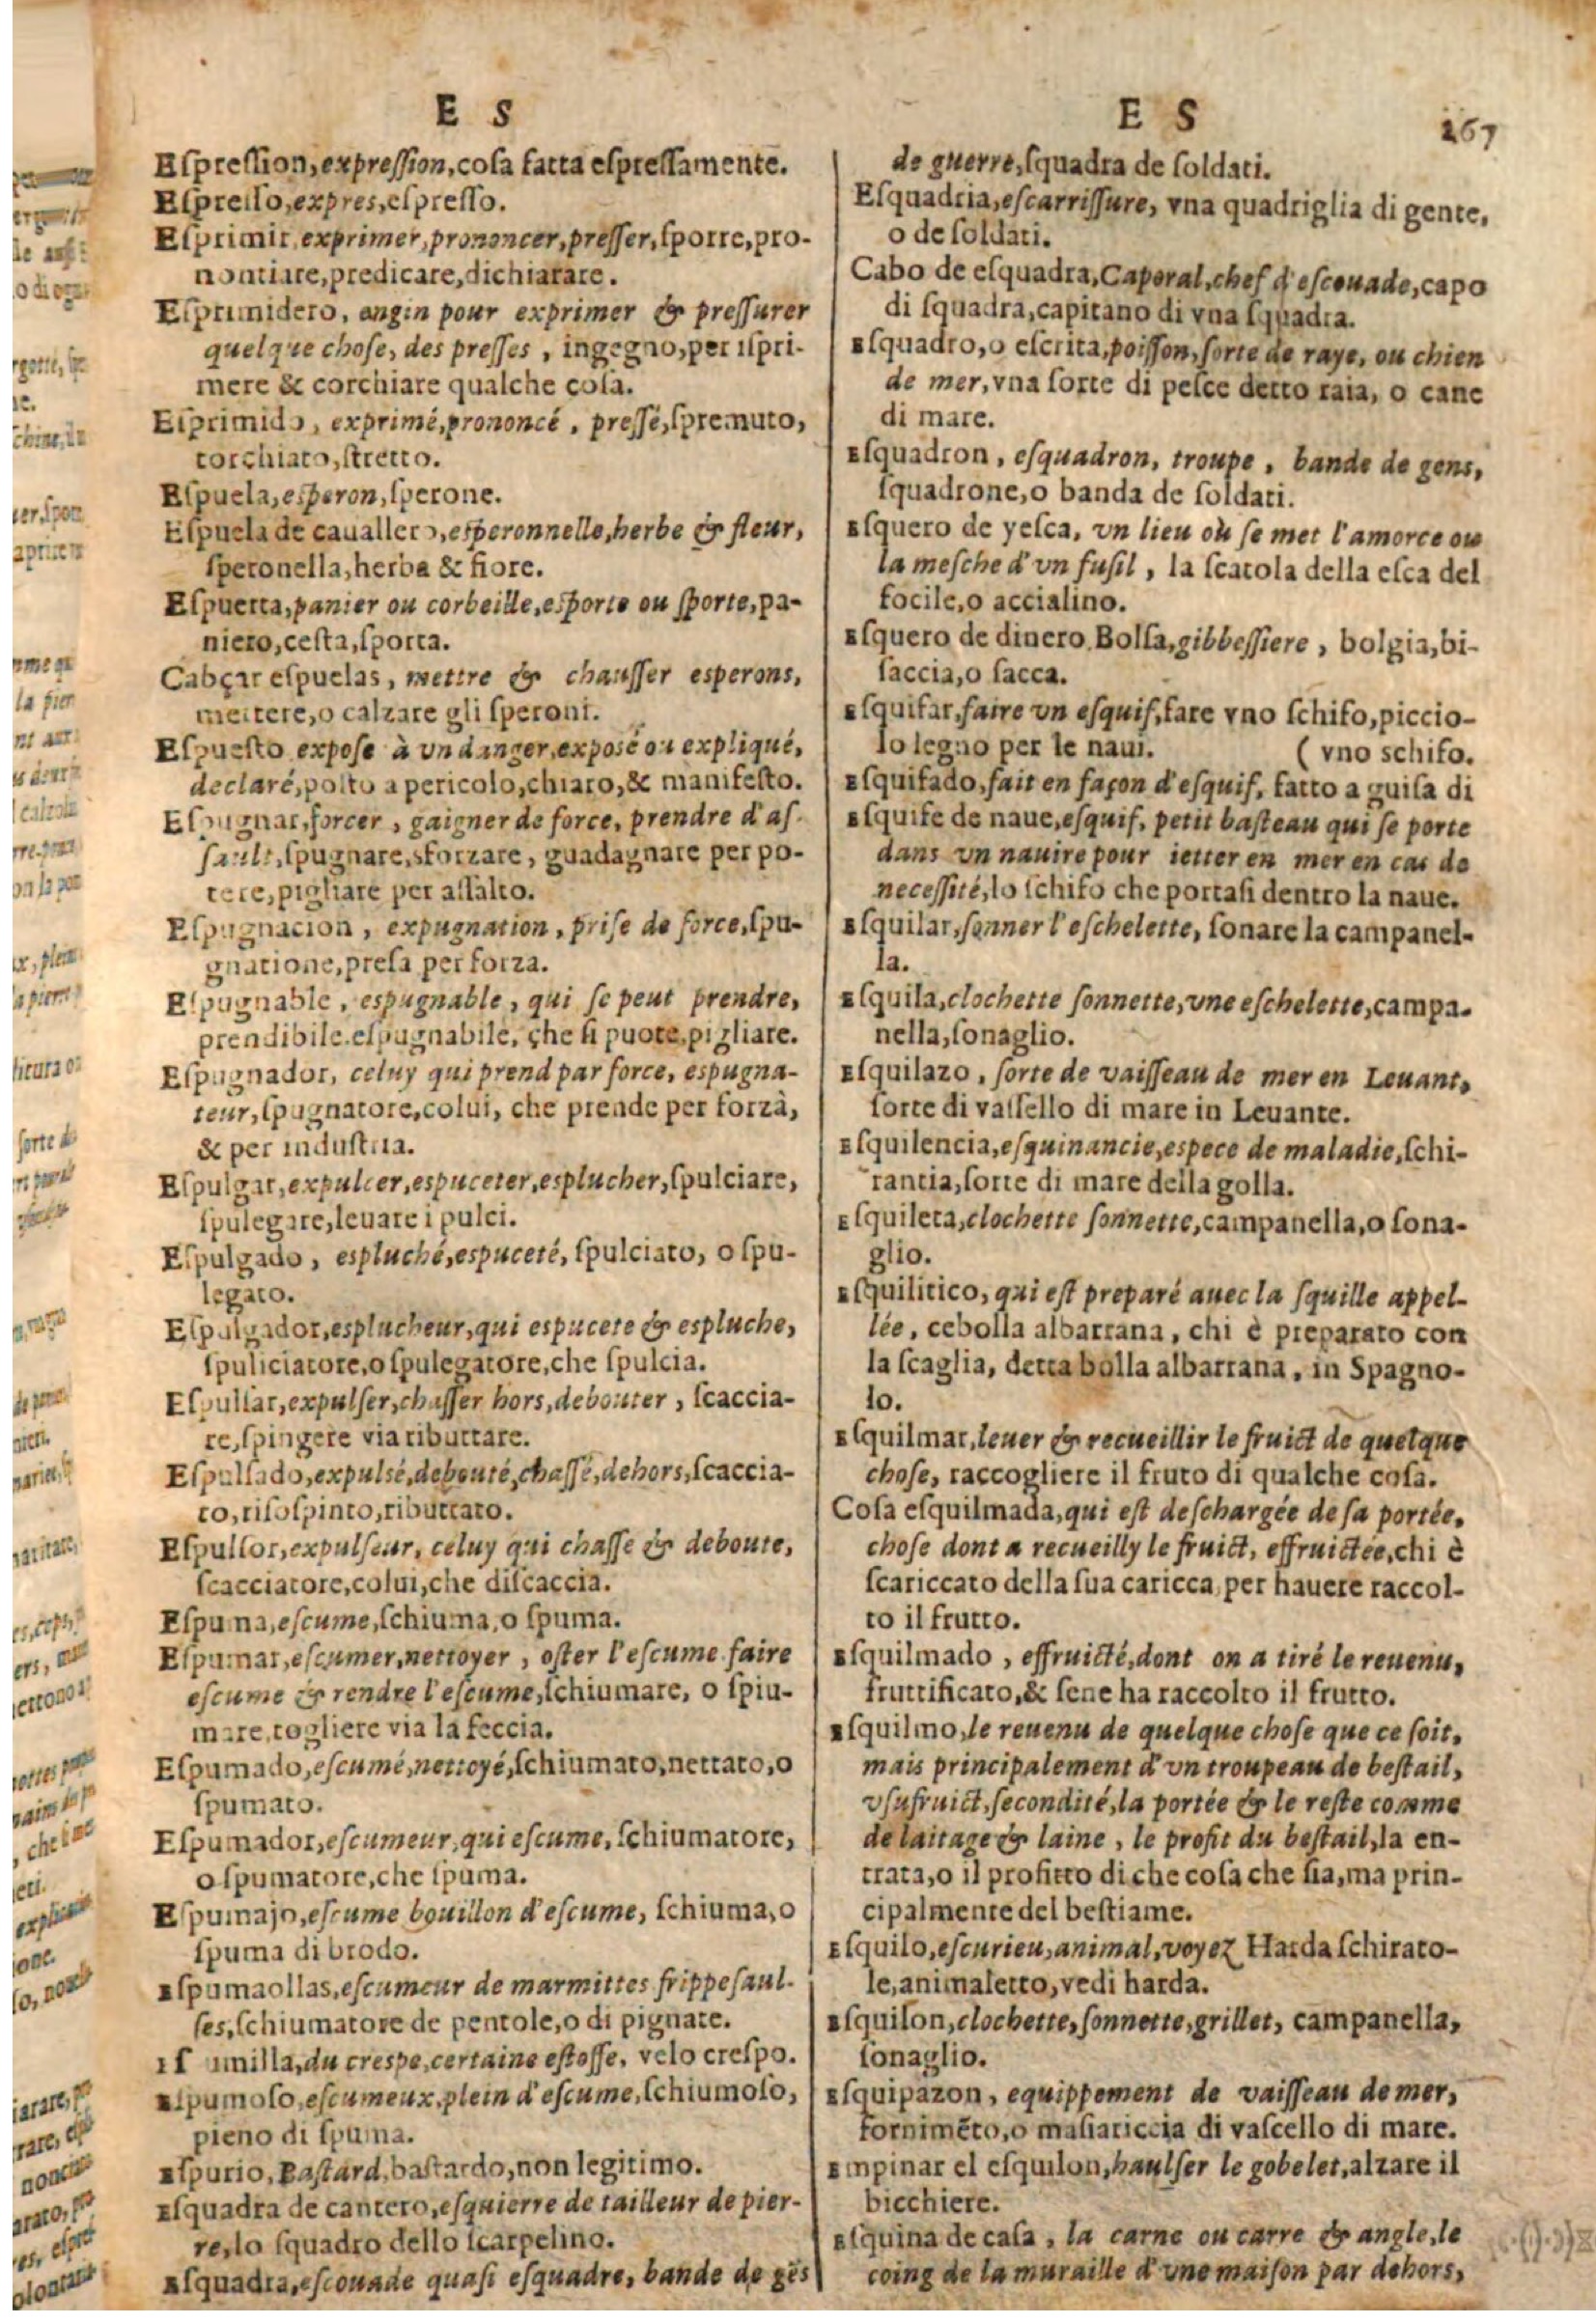 E S
Eſpreſſion, expreſſion, coſa fatta eſpreſſamente.
Eſpreſſo, expres, eſpreſſo.
Eſprimir exprimer, prononcer, preſſer, ſporre, pro-
nontiare, predicare, dichiarare.
Eſprimidero, engin pour exprimer & preſſurer
quelque choſe, des preſſes, ingegno, per iſpri-
mere & torchiare qualche coſa.
Eſprimido, exprimé, prononcé, preſſé, ſpremuto,
torchiato, ſtretto.
Eſpuela, eſperon, ſperone.
Eſpuela de cauallero, eſperonnelle, herbe & fleur,
ſperonella, herba & fiore.
Eſpuerta, panier ou corbeille, eſporte ou ſporte, pa-
niero, ceſta, ſporta.
Cabçar eſpuelas, mettre & chauſſer esperons,
mettere, o calzare gli ſperoni.
Eſpueſto expoſe à vn danger, exposé ou expliqué,
declaré, poſto a pericolo, chiaro, & manifeſto.
Eſpugnar, forcer, gaigner de force, prendre d'aſ-
ſault, ſpugnare, sforzare, guadagnare per po-
tere, pigliare per aſſalto.
Eſpugnacion, expugnation, priſe de force, ſpu-
gnatione, preſa per forza.
Eſpugnable, eſpugnable, qui ſe peut prendre,
prendibile. eſpugnabile, che ſi puote, pigliare.
Eſpugnador, celuy qui prend par force, eſpugna-
teur, ſpugnatore, colui, che prende per forzà,
& per induſtria.
Eſpulgar, expulcer, eſpuceter, eſplucher, ſpulciare,
ſpulegare, leuare i pulci.
Eſpulgado, eſpluché, eſpuceté, ſpulciato, o ſpu-
legato.
Eſpulgador, eſplucheur, qui eſpucete & eſpluche,
ſpuliciatore, o ſpulegatore, che ſpulcia.
Eſpulſar, expulſer, chaſſer hors, debouter, ſcaccia-
re, ſpingere via ributtare.
Eſpulſado, expulsé, debouté, chaſſé, dehors, ſcaccia-
to, riſoſpinto, ributtato.
Eſpulſor, expulſeur, celuy qui chaſſe & deboute,
ſcacciatore, colui, che diſcaccia.
Eſpuma, eſcume, ſchiuma, o ſpuma.
Eſpumar, eſcumer, nettoyer, oſter l'eſcume faire
eſcume & rendre l'eſcume, ſchiumare, o ſpiu-
mare, togliere via la feccia.
Eſpumado, eſcumé, nettoyé, ſchiumato, nettato, o
ſpumato.
Eſpumador, eſcumeur, qui eſcume, ſchiumatore,
o ſpumatore, che ſpuma.
Eſpumajo, eſcume bouillon d'eſcume, ſchiuma, o
ſpuma di brodo.
Eſpumaollas, eſcumeur de marmittes frippeſaul-
ſes, ſchiumatore de pentole, o di pignate.
umilla, du creſpe, certaine eſtoffe, velo creſpo.
Eſpumoſo, eſcumeux, plein d'eſcume, ſchiumoſo,
pieno di ſpuma.
Eſpurio, Baſtard, baſtardo, non legitimo.
Eſquadra de cantero, eſquierre de tailleur de pier-
re, lo ſquadro dello ſcarpelino.
Eſquadra, eſcouade quaſi eſquadre, bande de gẽs
E S 267
de guerre, ſquadra de ſoldati.
Eſquadria, eſcarriſſure, vna quadriglia di gente,
o de ſoldati.
Cabo de eſquadra, Caporal, chef d'eſcouade, capo
di ſquadra, capitano di vna ſquadra.
Eſquadro, o eſcrita, poiſſon, ſorte de raye, ou chien
de mer, vna ſorte di peſce detto raia, o cane
di mare.
Eſquadron, eſquadron, troupe, bande de gens,
ſquadrone, o banda de ſoldati.
Eſquero de yeſca, vn lieu où ſe met l'amorce ou
la meſche d'vn fuſil, la ſcatola della eſca del
focile, o accialino.
Eſquero de dinero Bolſa, gibbeſſiere, bolgia, bi-
ſaccia, o ſacca.
Eſquifar, faire vn eſquif, fare vno ſchifo, piccio-
lo legno per le naui. ( vno schifo.
Eſquifado, fait en façon d'eſquif, fatto a guiſa di
Eſquife de naue, eſquif, petit baſteau qui ſe porte
dans vn nauire pour ietter en mer en cas de
neceſſité, lo ſchifo che portaſi dentro la naue.
Eſquilar, ſonner l'eſchelette, ſonare la campanel-
la.
Eſquila, clochette ſonnette, vne eſchelette, campa-
nella, ſonaglio.
Eſquilazo, ſorte de vaiſſeau de mer en Leuant,
ſorte di vaſſello di mare in Leuante.
Eſquilencia, eſquinancie, espece de maladie, ſchi-
rantia, ſorte di mare della golla.
Eſquileta, clochette ſonnette, campanella, o ſona-
glio.
Eſquilitico, qui eſt preparé auec la ſquille appel-
lée, cebolla albarrana, chi è preparato con
la ſcaglia, detta bolla albarrana, in Spagno-
lo.
Eſquilmar, leuer & recueillir le fruict de quelque
choſe, raccogliere il fruto di qualche coſa.
Coſa eſquilmada, qui eſt deſchargée de ſa portée,
choſe dont a recueilly le fruict, effruictée, chi è
ſcariccato della ſua caricca, per havere raccol-
to il frutto.
Eſquilmado, effruicté, dont on a tiré le reuenu,
fruttificato, & ſene ha raccolto il frutto.
Eſquilmo, le reuenu de quelque choſe que ce ſoit,
mais principalement d'vn troupeau de beſtail,
vſufruict, ſecondité, la portée & le reſte comme
de laitage & laine, le profit du beſtail, la en-
trata, o il profitto di che coſa che ſia, ma prin-
cipalmente del beſtiame.
Eſquilo, eſcurieu, animal, voyez Harda ſchirato-
le, animaletto, vedi harda.
Eſquilon, clochette, ſonnette, grillet, campanella,
ſonaglio.
Eſquipazon, equippement de vaiſſeau de mer,
fornimẽto, o maſiariccia di vaſcello di mare.
Empinar el eſquilon, haulſer le gobelet, alzare il
bicchiere.
Eſquina de caſa, la carne ou carre & angle, le
coing de la muraille d'vne maiſon par dehors,